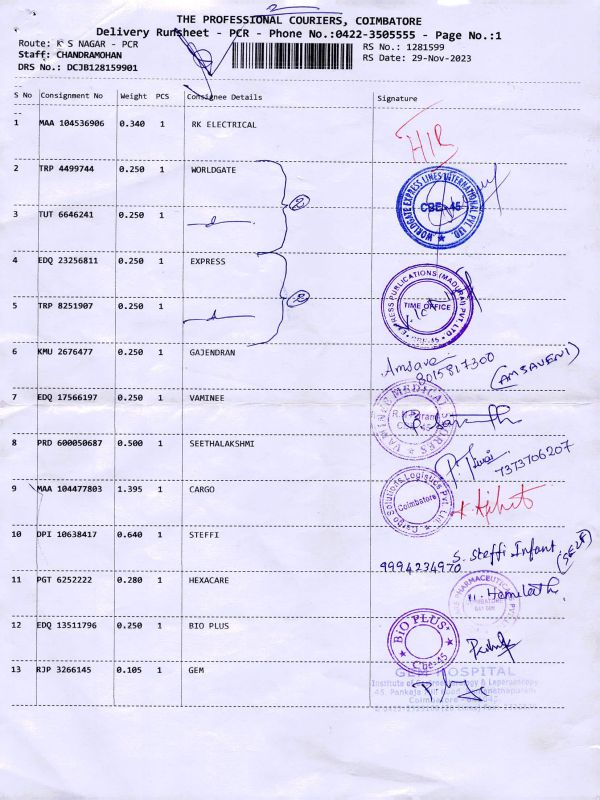 THE PROFESSIONAL COURIERS, COIMBATORE
Delivery Runsheet - PCR - Phone No.:0422-3505555 - Page No.:1
Route: K S NAGAR - PCR
RS No.: 1281599
Staff: CHANDRAMOHAN
RS Date: 29-Nov-2023
DRS No.: DCJB128159901
S No Consignment No Weight PCS Consignee Details Signature
1 MAA 104536906 0.340 1 RK ELECTRICAL
2 TRP 4499744 0.250 1 WORLDGATE
WORLDGATE EXPRESS LINES INTERNATIONAL PVT. LTD.
CBE-45
3 TUT 6646241 0.250 1
4 EDQ 23256811 0.250 1 EXPRESS
EXPRESS PUBLICATIONS (MADURAI) PVT. LTD.
TIME OFFICE
CBE-45
5 TRP 8251907 0.250 1
6 KMU 2676477 0.250 1 GAJENDRAN
8015817300
(AMSAVENI)
7 EDQ 17566197 0.250 1 VAMINEE
VAMINEE MEDICAL STORES
8 PRD 600050687 0.500 1 SEETHALAKSHMI
7373706207
9 MAA 104477803 1.395 1 CARGO
Cargo Solutions Logistics Pvt. Ltd.
Coimbatore
10 DPI 10638417 0.640 1 STEFFI
S. Steffi Infant
(SELF)
9994234970
11 PGT 6252222 0.280 1 HEXACARE
12 EDQ 13511796 0.250 1 BIO PLUS
BIO PLUS
Cbe-45
13 RJP 3266145 0.105 1 GEM
GEM HOSPITAL
Coimbatore